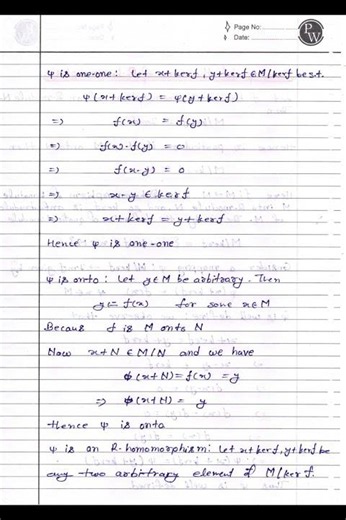 Page No:
Date:
PW
ψ is one-one: Let x+kerf, y+kerf ∈ M/kerf be s.t.
ψ(x+kerf) = ψ(y+kerf)
=> f(x) = f(y)
=> f(x)-f(y) = 0
=> f(x-y) = 0
=> x-y ∈ kerf
=> x+kerf = y+kerf
Hence: ψ is one-one
ψ is onto: Let y∈M be arbitrary. Then
y = f(x) for some x∈M
Becaus f is M onto N
Now x+N ∈ M/N and we have
ϕ(x+N) = f(x) = y
=> ϕ(x+N) = y
Hence ψ is onto
ψ is an R-homomorphism: Let x+kerf, y+kerf be
any two arbitrary element of M/kerf.